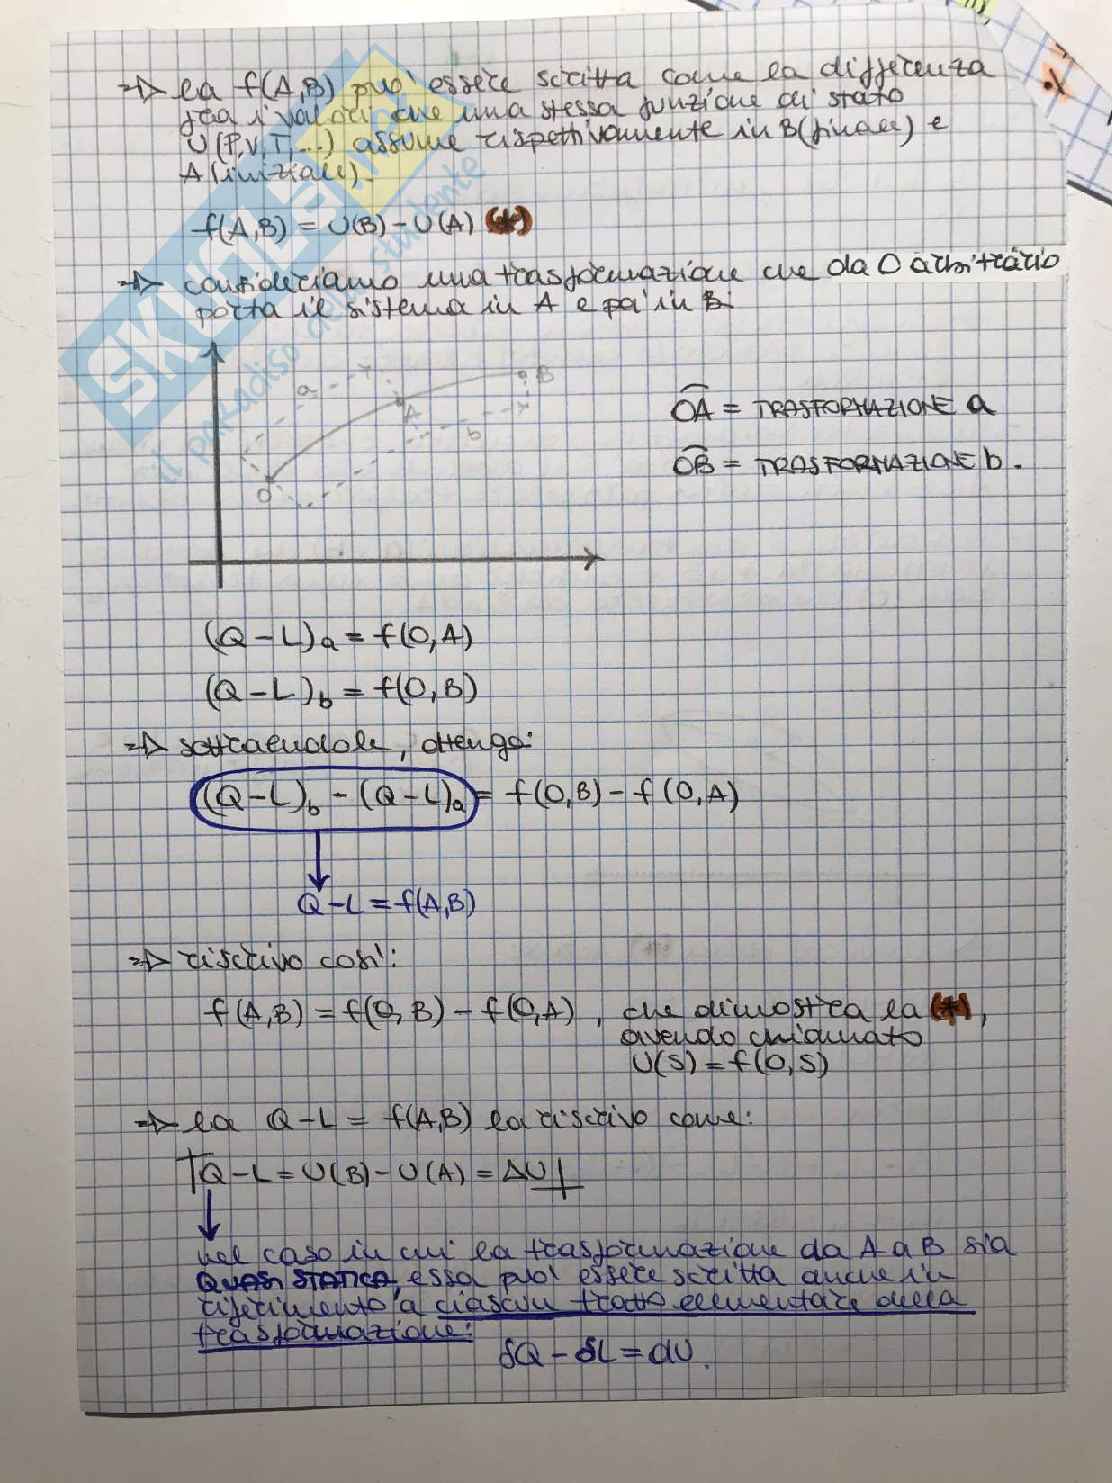 => la f(A,B) può essere scritta come la differenza
fra i valori che una stessa funzione di stato
U(P,V,T,...) assume rispettivamente in B(finale) e
A(iniziale).
f(A,B) = U(B) - U(A) (*)
=> consideriamo una trasformazione che da O arbitrario
porta il sistema in A e poi in B.
a
B
A
b
O
OA = TRASFORMAZIONE a
OB = TRASFORMAZIONE b.
(Q-L)a = f(O,A)
(Q-L)b = f(O,B)
=> sottraendole, ottengo:
(Q-L)b - (Q-L)a = f(O,B) - f(O,A)
Q-L = f(A,B)
=> riscrivo così:
f(A,B) = f(O,B) - f(O,A), che dimostra la (*),
avendo chiamato
U(S) = f(O,S)
=> la Q-L = f(A,B) la riscrivo come:
Q-L = U(B) - U(A) = ΔU
nel caso in cui la trasformazione da A a B sia
QUASI STATICA, essa può essere scritta anche in
riferimento a ciascun tratto elementare della
trasformazione:
δQ - δL = dU.
il paradiso dello studente